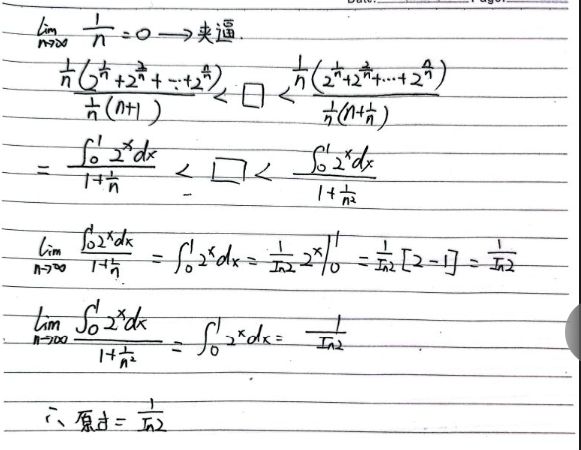 lim_{n→∞} 1/n = 0 → 夹逼.
\frac{\frac{1}{n}(2^{\frac{1}{n}}+2^{\frac{2}{n}}+⋯+2^{\frac{n}{n}})}{\frac{1}{n}(n+1)} < □ < \frac{\frac{1}{n}(2^{\frac{1}{n}}+2^{\frac{2}{n}}+⋯+2^{\frac{n}{n}})}{\frac{1}{n}(n+\frac{1}{n})}
= \frac{∫_0^1 2^x dx}{1+\frac{1}{n}} < □ < \frac{∫_0^1 2^x dx}{1+\frac{1}{n^2}}
lim_{n→∞} \frac{∫_0^1 2^x dx}{1+\frac{1}{n}} = ∫_0^1 2^x dx = \frac{1}{ln2} 2^x |_0^1 = \frac{1}{ln2} [2-1] = \frac{1}{ln2}
lim_{n→∞} \frac{∫_0^1 2^x dx}{1+\frac{1}{n^2}} = ∫_0^1 2^x dx = \frac{1}{ln2}
∴ 原式 = \frac{1}{ln2}